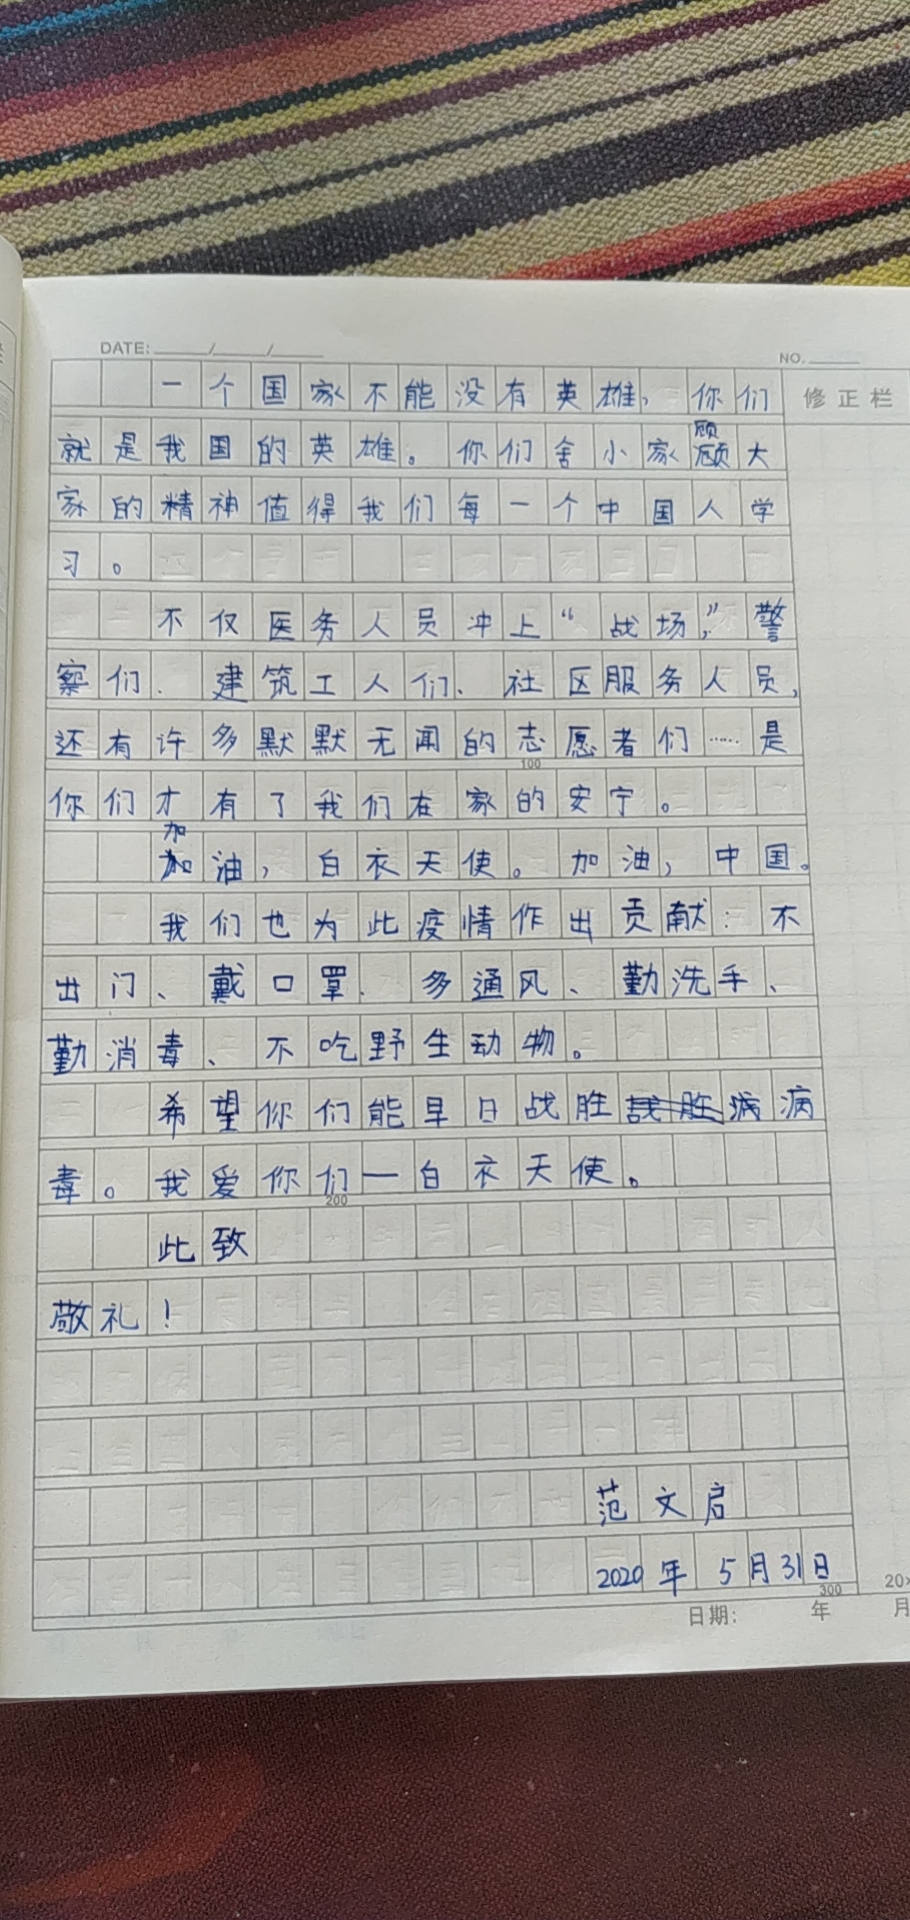 DATE: / /
NO.
一个国家不能没有英雄，你们
修正栏
就是我国的英雄。你们舍小家顾大
家的精神值得我们每一个中国人学
习。
不仅医务人员冲上“战场”，警
察们、建筑工人们、社区服务人员，
还有许多默默无闻的志愿者们……是
100
你们才有了我们在家的安宁。
加油，白衣天使。加油，中国。
我们也为此疫情作出贡献：不
出门、戴口罩、多通风、勤洗手、
勤消毒、不吃野生动物。
希望你们能早日战胜病
毒。我爱你们—白衣天使。
200
此致
敬礼！
范文启
2020年5月31日
300
20×
日期： 年 月